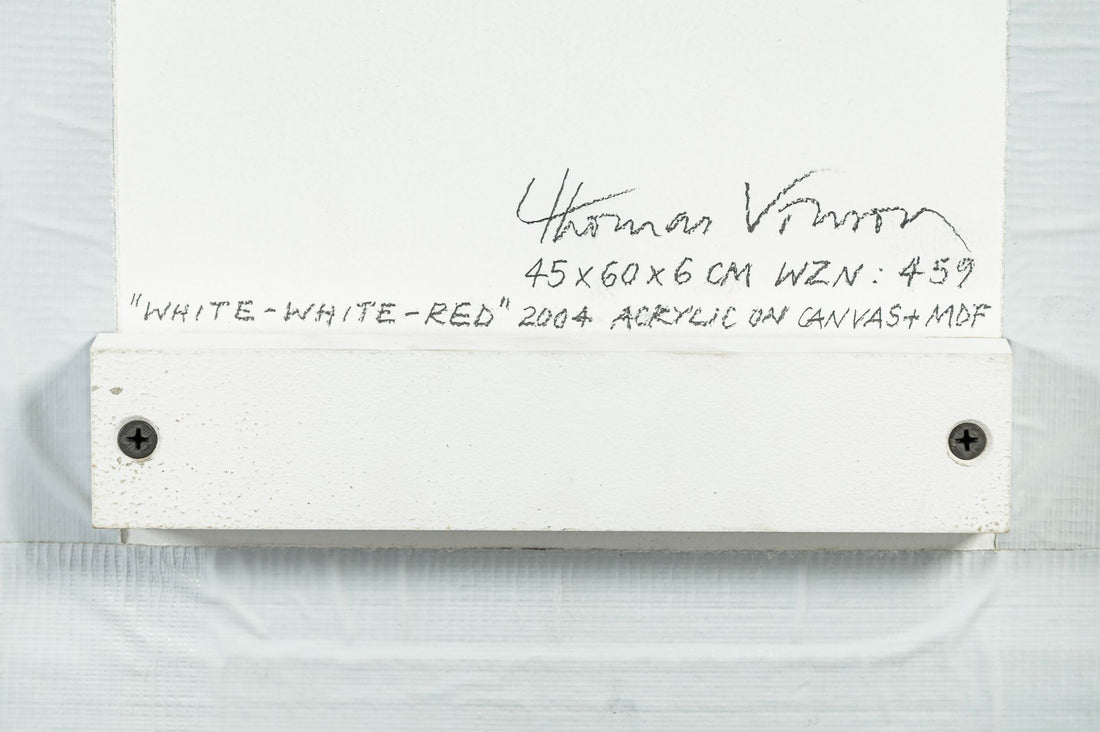 Thomas Vinson
45 x 60 x 6 CM WZN: 459
"WHITE-WHITE-RED" 2004 ACRYLIC ON CANVAS + MDF